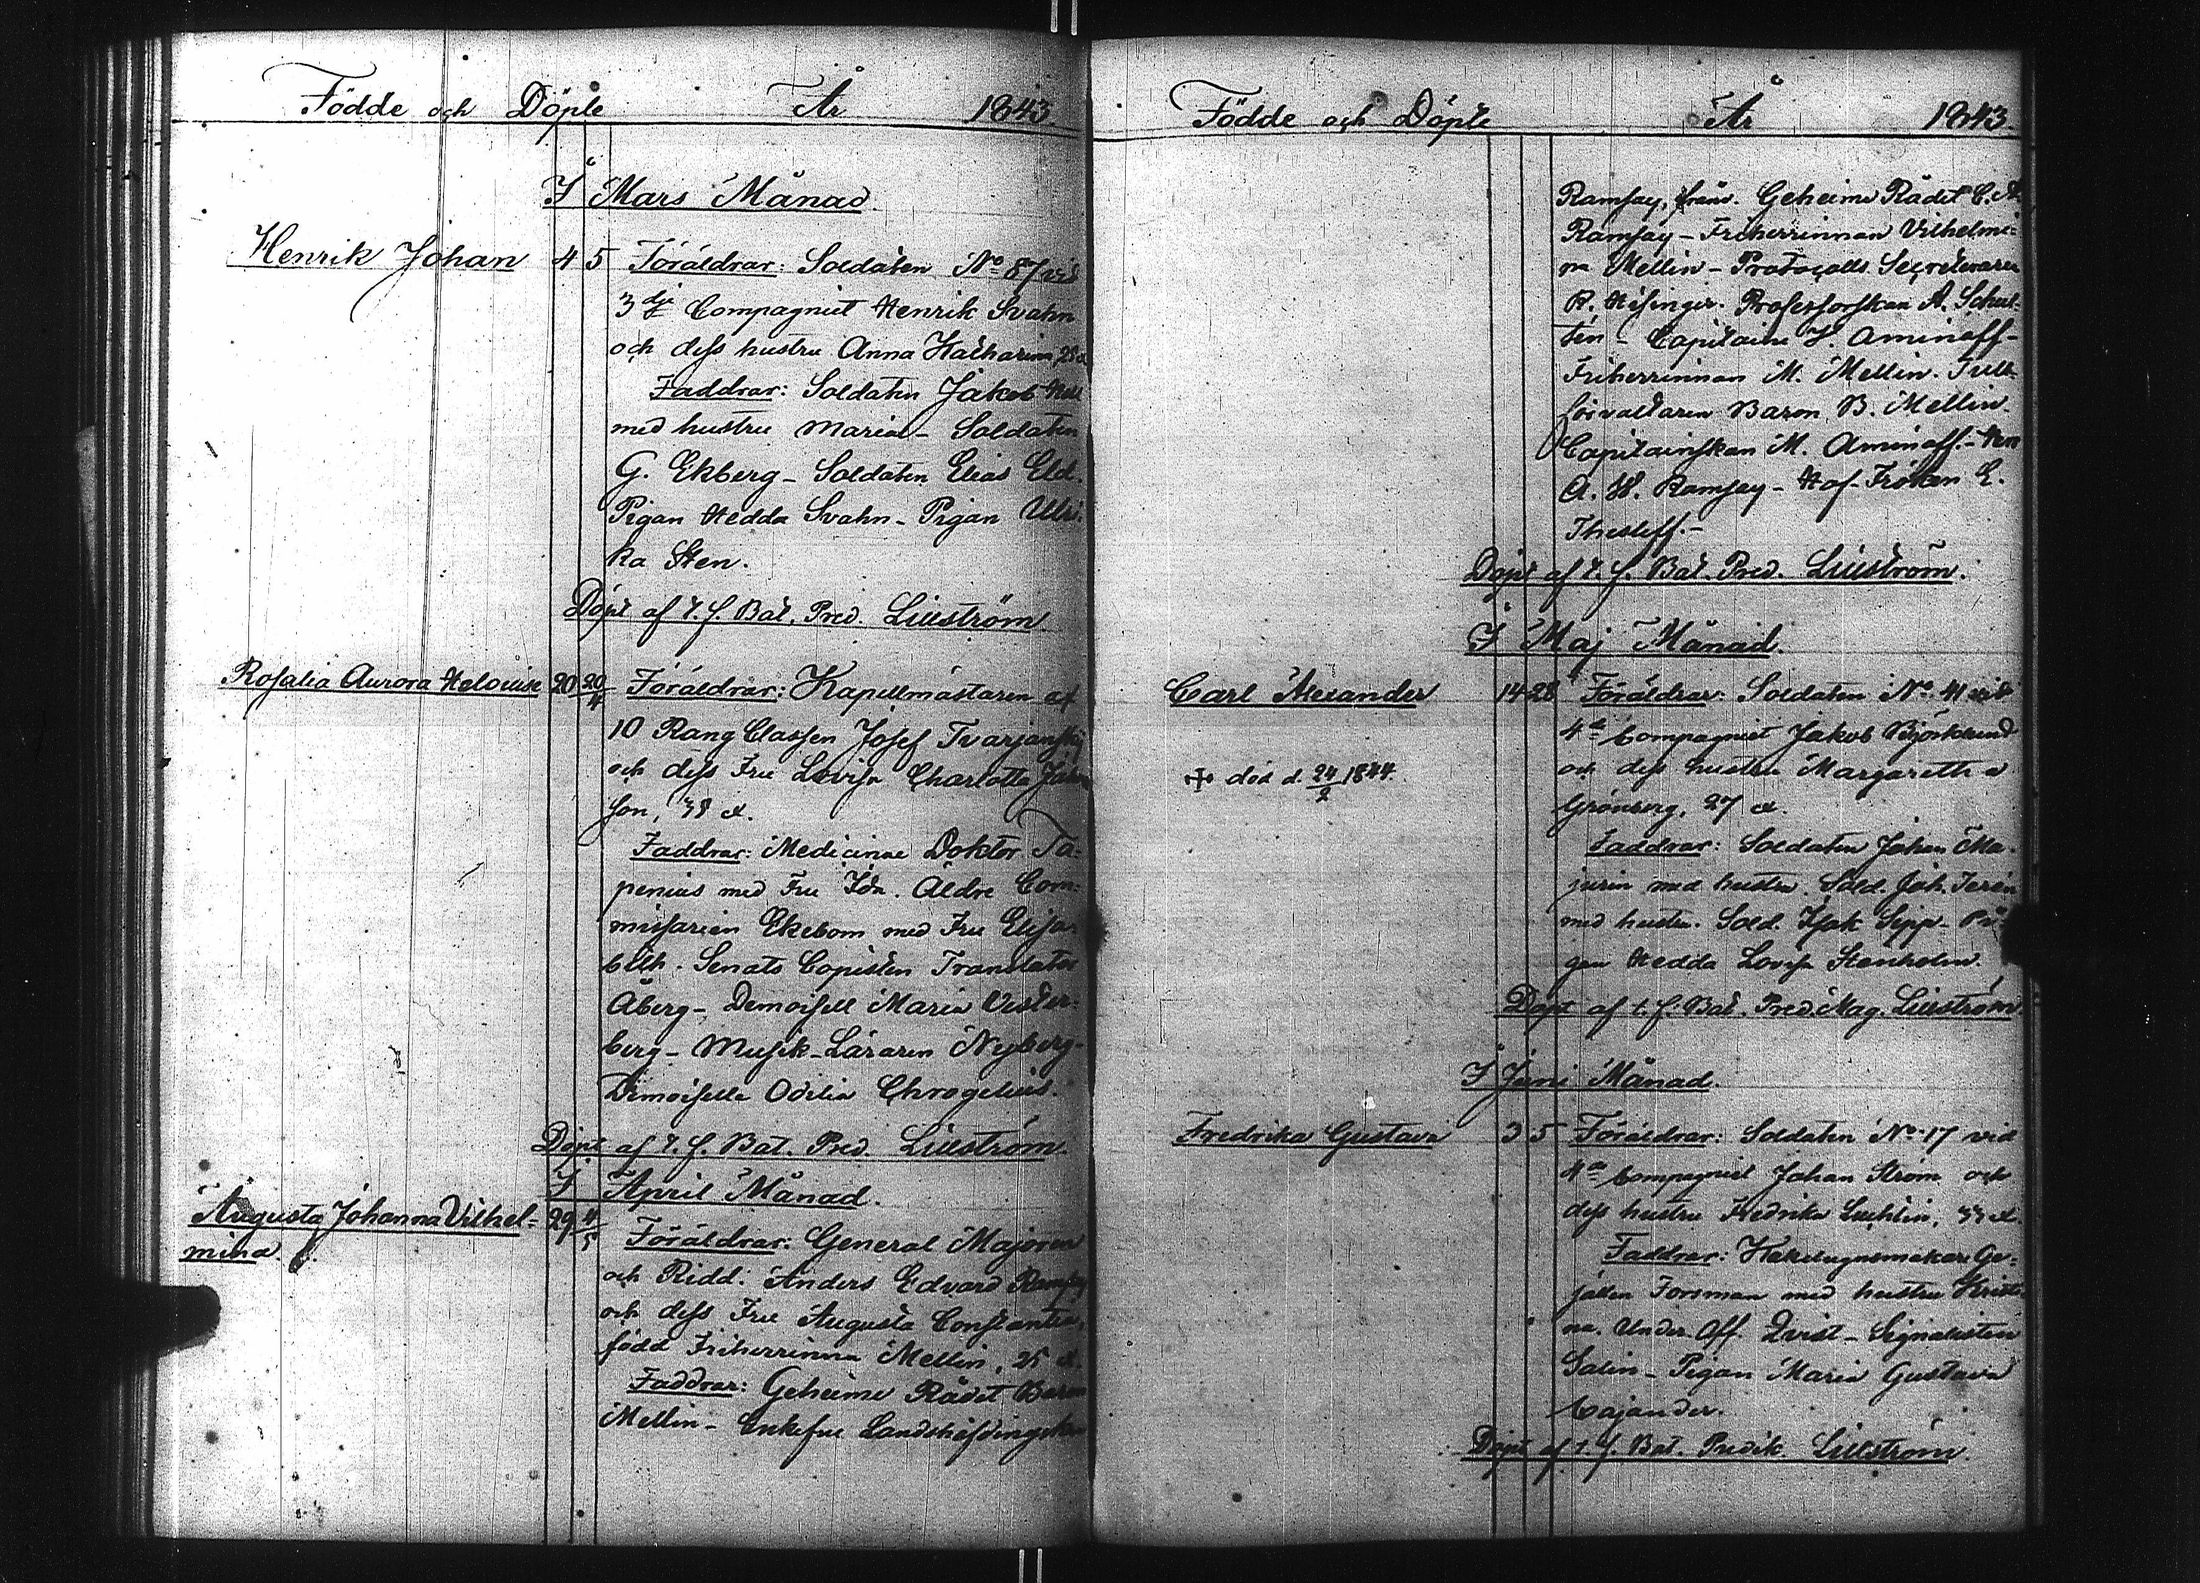 Födde och Döpte År 1843.
I Mars Månad.
Henrik Johan 4 5 Föräldrar: Soldaten No 87 vid
3dje Compagniet Henrik Svahn
och dess hustru Anna Katharina, 25
Faddrar: Soldaten Jakob
med hustru Maria - Soldaten
G. Ekberg - Soldaten Elias Eld.
Pigan Hedda Svahn - Pigan Ulri:
ka Sten.
Döpt af t. f. Bat. Pred. Lillström.
Rosalia Aurora Helouise 20 20/4 Föräldrar: Kapellmästaren af
10 Rang Classen Josef Tvarjansky
och dess Fru Lovisa Charlotta
son, 38 å.
Faddrar: Medicinae Doktor Ta:
penius med Fru Ida. Äldre Com:
missarien Ekebom med Fru Elisa:
beth. Senats Copisten Translator
Åberg - Demoisell Maria Vester:
berg - Musik-Läraren Nyberg -
Demoiselle Odilia Chrogelius.
Döpt af t. f. Bat. Pred. Lillström.
I April Månad.
Augusta Johanna Vilhel= 29 4/5 Föräldrar: General Majoren
mina.
och Ridd: Anders Edvard Ramsay
och dess Fru Augusta Constantia,
född Friherrinna Mellin, 25 å.
Faddrar: Geheime Rådet Baron
Mellin - Enkefru Landshöfdingskan
Födde och Döpte År 1843.
Ramsay, Geheime Rådet C. A.
Ramsay - Friherrinnan Vilhelmi=
na Mellin - Protocolls Secreteraren
R. Hisinger. Professorskan A. Schul=
tén - Capitaine J. Aminoff -
Friherrinnan M. Mellin. Tull=
förvaltaren Baron B. Mellin.
Capitainskan M. Aminoff. - Herr
A. W. Ramsay - Hof Fröken E.
Thesleff. -
Döpt af t. f. Bat. Pred. Lillström.
I Maj Månad.
Carl Alexander 14 28 Föräldrar: Soldaten No 41 vid
4a Compagniet Jakob Björklund
+ död d. 24/2 1844.
och dess hustru Margaretha
Grönberg, 27 å.
Faddrar: Soldaten Johan Ma=
jurin med hustru. Sold. Joh. Terén
med hustru. Sold. Isak Sipp - Pi=
gan Hedda Lovisa Stenholm.
Döpt af t. f. Bat. Pred. Mag. Lillström
I Juni Månad.
Fredrika Gustava 3 5 Föräldrar: Soldaten No 17 vid
4a Compagniet Johan Ström och
dess hustru Fredrika, 33 å.
Faddrar: Kakelugnsmakare Ge=
sällen Forsman med hustru Kristi=
na. Under Off. Qvist - Signalisten
Salin - Pigan Maria Gustava
Cajander.
Döpt af t. f. Bat. Predik. Lillström.